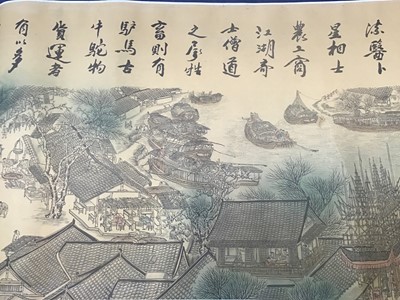 醫卜
星相士
農工商
江湖奇
士僧道
之屬牲
畜則有
馿馬古
牛駝物
貨運者
有以多